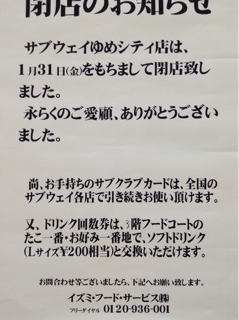 閉店のお知らせ
サブウェイゆめシティ店は、
1月31日(金)をもちまして閉店致し
ました。
永らくのご愛顧、ありがとうござい
ました。
尚、お手持ちのサブクラブカードは、全国の
サブウェイ各店で引き続きお使い頂けます。
又、ドリンク回数券は、3階フードコートの
たこ一番・お好み一番地で、ソフトドリンク
(Lサイズ¥200相当)と交換いただけます。
お問合わせ等ございましたら、下記へお願い致します。
イズミ・フード・サービス㈱
フリーダイヤル 0120-936-001